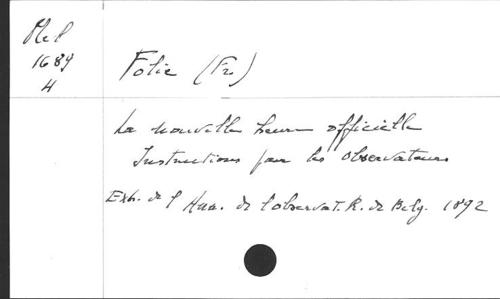 Mel
1689
H
Folie (Fr.)
La nouvelle heure officielle
Instructions pour les observateurs
Extr. de l'Ann. de l'observat. R. de Belg. 1892